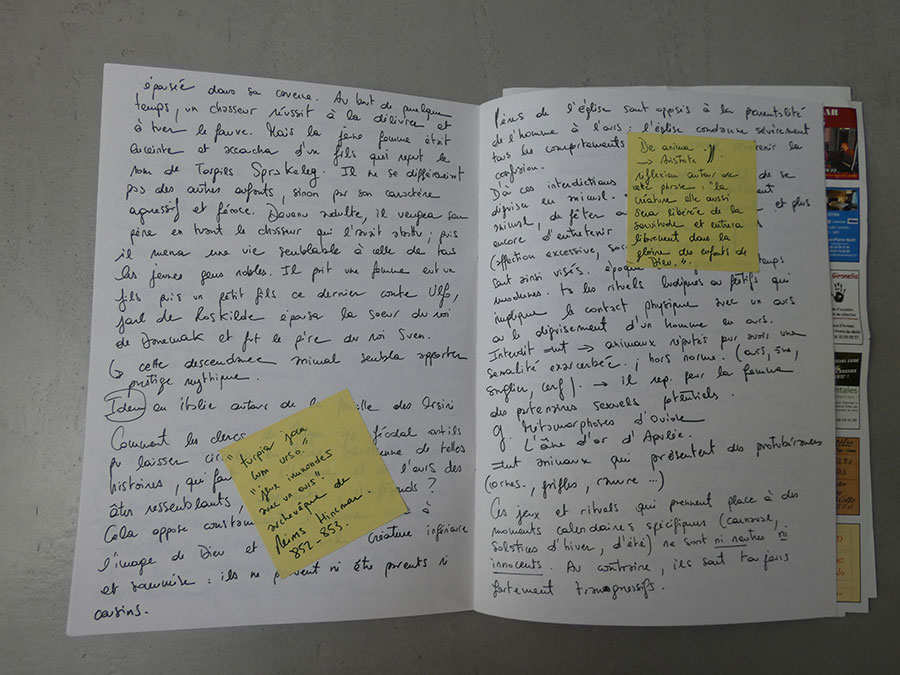 épousée dans sa caverne. Au bout de quelque
temps, un chasseur réussit à la délivrer et
à tuer le fauve. Mais la jeune femme était
enceinte et accoucha d'un fils qui reçut le
nom de Torgils Sprakeleg. Il ne se différenciait
pas des autres enfants, sinon par son caractère
agressif et féroce. Devenu adulte, il vengea son
père en tuant le chasseur qui l'avait abattu ; puis
il mena une vie semblable à celle de tous
les jeunes gens nobles. Il prit une femme eut un
fils puis un petit fils ce dernier conte Ulfo,
jarl de Roskilde épousa la soeur du roi
de Danemark et fut le père du roi Sven.
↳ cette descendance animal sembla apporter
prestige mythique.
Idem en italie autour de la famille des Orsini
Comment les clercs féodal ont ils
pu laisser de telles
histoires, qui l'ours des
êtres ressemblants,
Cela oppose à
l'image de Dieu et créature inférieure
et soumise : ils ne peuvent ni être parents ni
cousins.
"turpia joca
cum urso."
"jeux immondes
avec un ours".
archevêque de
Reims Hincmar.
852-853.
Pères de l'église sont opposés à la parentalité
de l'homme à l'ours : l'église condamne sévèrement
tous les comportements la
confusion.
D'où ces interdictions de se
déguiser en animal.
animal, de fêter et plus
encore d'entretenir
(affection excessive,
sont ainsi visés. époque temps
modernes. ts les rituels ludiques ou festifs qui
implique le contact physique avec un ours
ou le déguisement d'un homme en ours.
Interdit → animaux réputés pour avoir une
sexualité exacerbée ; hors norme. (ours, âne,
sanglier, cerf). → il rep. pour la femme
des partenaires sexuels potentiels.
cf. Métamorphoses d'Ovide
L'âne d'or d'Apulée.
animaux qui présentent des protubérances
(cornes, griffes, ...)
Ces jeux et rituels qui prennent place à des
moments calendaires spécifiques (
solstices d'hiver, d'été) ne sont ni neutres ni
innocents. Au contraire, ils sont toujours
fortement transgressifs.
De anima
→ Aristote
réflexion autour de
cette phrase : "la
créature elle aussi
sera libérée de la
servitude et entrera
librement dans la
gloire des enfants de
Dieu."